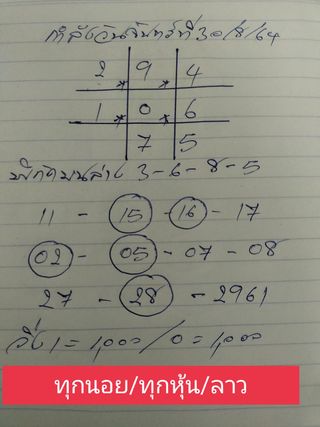 กำลังวันจันทร์ที่ 30/8/64
2 * 9 * 4
1 * 0 * 6
7 5
บนล่าง 3-6-8-5
11 - 15 - 16 - 17
02 - 05 - 07 - 08
27 - 28 - 2961
วิ่ง 1 = 1,000 / 0 = 1,000
ทุกนอย/ทุกหุ้น/ลาว